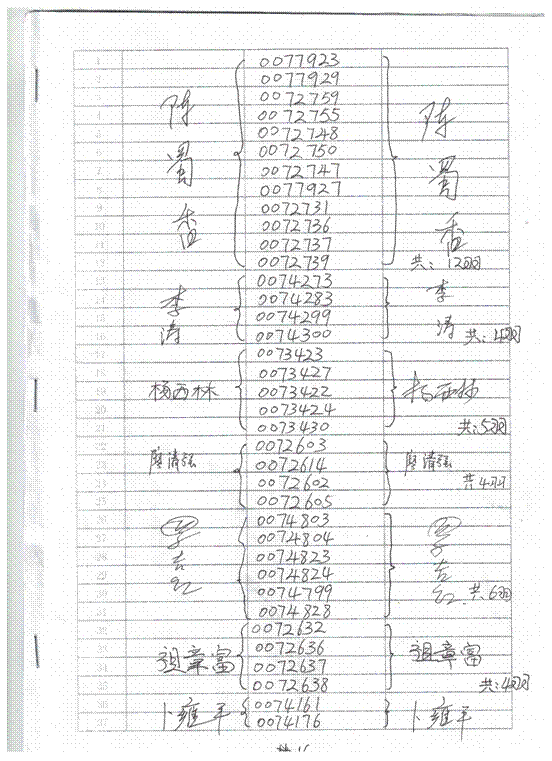 1 0077923
2 0077929
3 0072759
4 0072755
5 0072748
6 0072750
7 0072747
8 0077927
9 0072731
10 0072736
11 0072737
12 0072739
陈蜀香 陈蜀香
共：12羽
13 0074273
14 0074283
15 0074299
16 0074300
李涛 李涛
共：4羽
17 0073423
18 0073427
19 杨西林 0073422 杨西林
20 0073424
21 0073430
共：5羽
22 0072603
23 廖清弦 0072614 廖清弦
24 0072602 共4羽
25 0072605
26 0074803
27 0074804
28 0074823
29 0074824
30 0074799 共：6羽
31 0074828
吉红 吉红
32 0072632
33 0072636
34 章富 0072637 章富
35 0072638 共：4羽
36 卜雍平 0074161 卜雍平
37 0074176